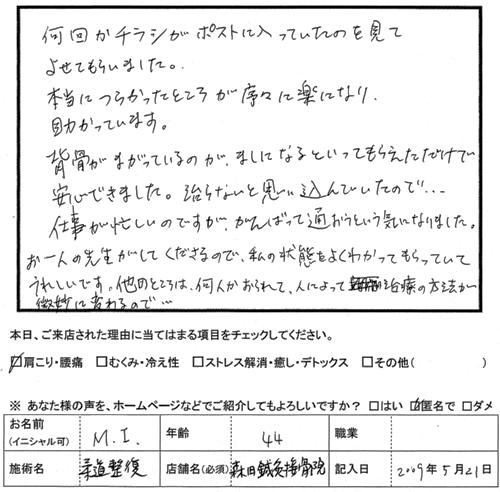 何回かチラシがポストに入っていたのを見て
よせてもらいました。
本当につらかったところが序々に楽になり、
助かっています。
背骨がまがっているのが、ましになるといってもらえただけで
安心できました。治らないと思い込んでいたので…
仕事が忙しいのですが、がんばって通おうという気になりました。
お一人の先生がしてくださるので、私の状態をよくわかってもらっていて
うれしいです。他のところは、何人かおられて、人によって治療の方法が
微妙に変わるので…
本日、ご来店された理由に当てはまる項目をチェックしてください。
☑肩こり・腰痛 □むくみ・冷え性 □ストレス解消・癒し・デトックス □その他( )
※ あなた様の声を、ホームページなどでご紹介してもよろしいですか？ □はい ☑匿名で □ダメ
お名前(イニシャル可) M.I. 年齢 44 職業
施術名 柔道整復 店舗名(必須) 森田鍼灸接骨院 記入日 2009年5月21日